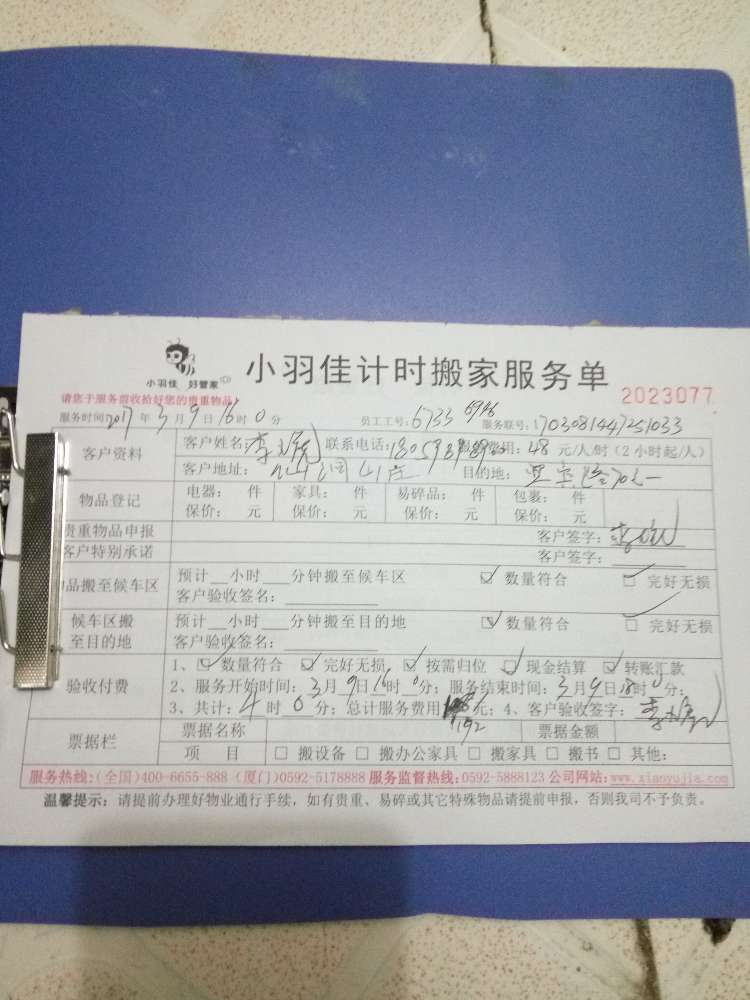 小羽佳 好管家
小羽佳计时搬家服务单
2023077
请您于服务前收拾好您的贵重物品!
服务时间:2017年3月9日16时0分 员工工号:6733 6946 服务联号:1703081447251033
客户资料 客户姓名:李 联系电话: 费用:48元/人/时(2小时起/人)
客户地址: 目的地:
物品登记 电器: 件 家具: 件 易碎品: 件 包裹: 件
保价: 元 保价: 元 保价: 元 保价: 元
贵重物品申报 客户签字:
客户特别承诺 客户签字:
物品搬至候车区 预计__小时___分钟搬至候车区 ☑ 数量符合 ☑ 完好无损
客户验收签名:
候车区搬至目的地 预计__小时___分钟搬至目的地 ☑ 数量符合 ☑ 完好无损
客户验收签名:
验收付费 1、☑ 数量符合 ☑ 完好无损 ☑ 按需归位 ☑ 现金结算 ☑ 转账汇款
2、服务开始时间:3月9日16时0分;服务结束时间:3月9日18时0分;
3、共计:4时0分;总计服务费用192元;4、客户验收签字:李
票据栏 票据名称 票据金额
项 目 □ 搬设备 □ 搬办公家具 □ 搬家具 □ 搬书 □ 其他:
服务热线:(全国)400-6655-888 (厦门)0592-5178888 服务监督热线:0592-5888123 公司网站:www.xiaoyujia.com
温馨提示:请提前办理好物业通行手续,如有贵重、易碎或其它特殊物品请提前申报,否则我司不予负责。